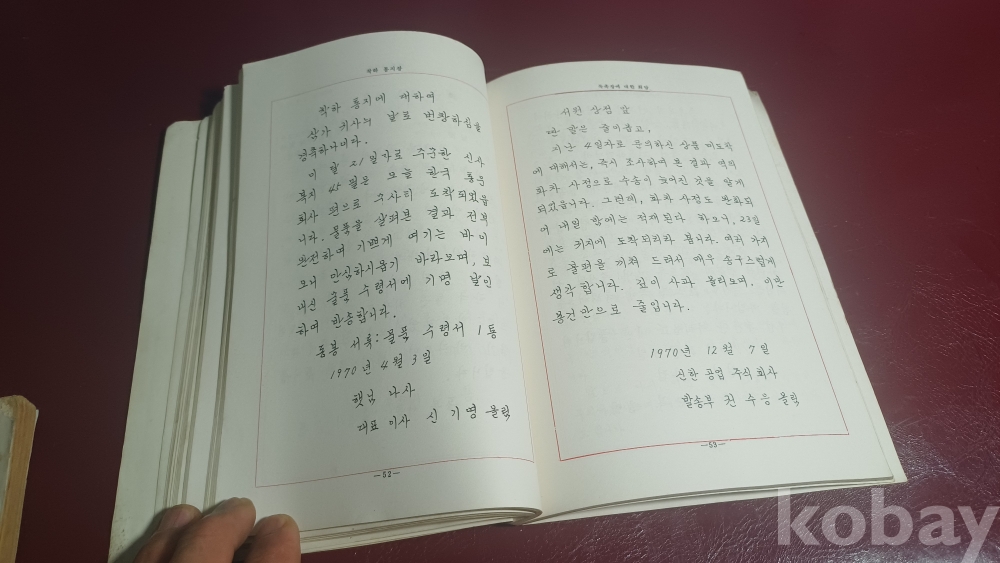 착하 통지장
착하 통지에 대하여
삼가 귀사의 날로 번창하심을
경축하나이다.
이 달 21일자로 주문한 신사
복지 45필은 오늘 한국 통운
회사 편으로 무사히 도착되었읍
니다. 물품을 살펴본 결과 전부
완전하여 기쁘게 여기는 바이
오니 안심하시옵기 바라오며, 보
내신 물품 수령서에 기명 날인
하여 반송합니다.
동봉 서류: 물품 수령서 1통
1970년 4월 3일
햇님 나사
대표 이사 신기영 올림
—52—
대한 회답
서원 상점 앞
만 앞은 줄이옵고,
지난 4일자로 문의하신 상품 미도착
에 대해서는, 즉시 조사하여 본 결과 역의
화차 사정으로 수송이 늦어진 것을 알게
되었읍니다. 그런데, 화차 사정도 완화되
어 내일 항에는 적재된다 하오니, 23일
에는 귀지에 도착되리라 봅니다. 여러 가지
로 불편을 끼쳐 드려서 매우 송구스럽게
생각합니다. 깊이 사과 올리오며, 이만
용건만으로 줄입니다.
1970년 12월 7일
신한 공업 주식회사
발송부 전수응 올림
—53—
kobay